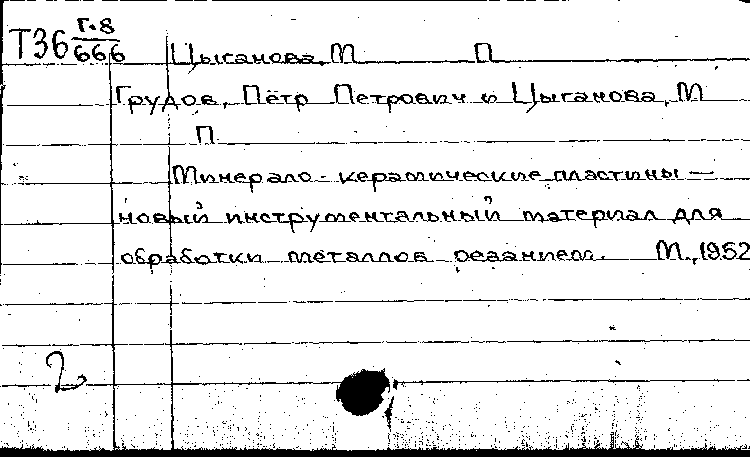 Т36 Г.8/666 Цыганова, М П
Грудов, Пётр Петрович и Цыганова, М
П
Минерало-керамические пластины —
новый инструментальный материал для
обработки металлов резанием. М., 1952
2